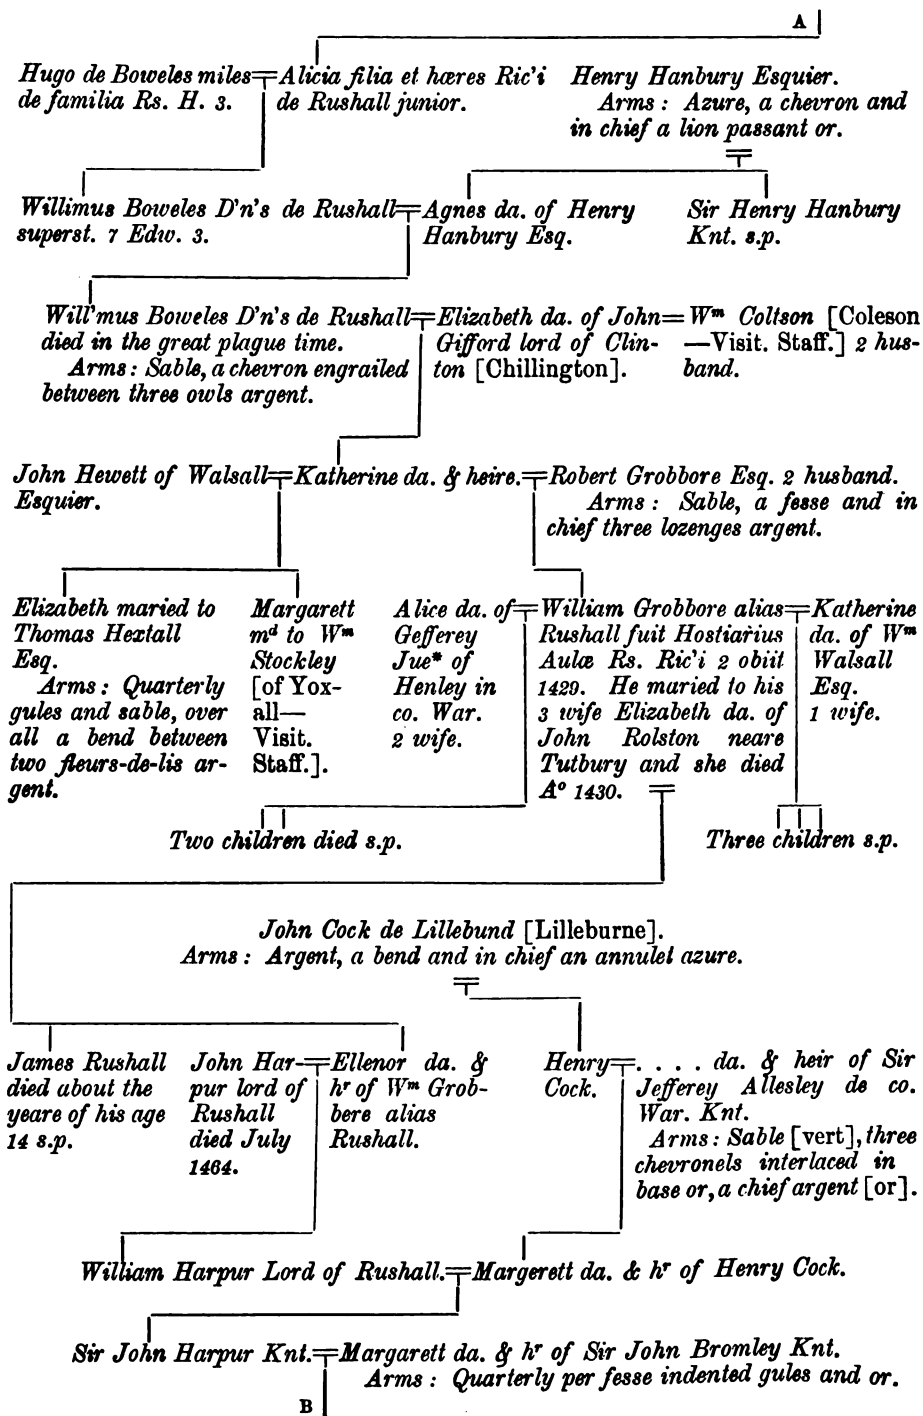 A
Hugo de Boweles miles
de familia Rs. H. 3.
Alicia filia et hæres Ric'i
de Rushall junior.
Henry Hanbury Esquier.
Arms: Azure, a chevron and
in chief a lion passant or.
Willimus Boweles D'n's de Rushall
superst. 7 Edw. 3.
Agnes da. of Henry
Hanbury Esq.
Sir Henry Hanbury
Knt. s.p.
Will'mus Boweles D'n's de Rushall
died in the great plague time.
Arms: Sable, a chevron engrailed
between three owls argent.
Elizabeth da. of John
Gifford lord of Clin-
ton [Chillington].
Wm Coltson [Coleson
—Visit. Staff.] 2 hus-
band.
John Hewett of Walsall
Esquier.
Katherine da. & heire.
Robert Grobbore Esq. 2 husband.
Arms: Sable, a fesse and in
chief three lozenges argent.
Elizabeth maried to
Thomas Hextall
Esq.
Arms: Quarterly
gules and sable, over
all a bend between
two fleurs-de-lis ar-
gent.
Margarett
md to Wm
Stockley
[of Yox-
all—
Visit.
Staff.].
Alice da. of
Gefferey
Jue* of
Henley in
co. War.
2 wife.
William Grobbore alias
Rushall fuit Hostiarius
Aulæ Rs. Ric'i 2 obiit
1429. He maried to his
3 wife Elizabeth da. of
John Rolston neare
Tutbury and she died
Ao 1430.
Katherine
da. of Wm
Walsall
Esq.
1 wife.
Two children died s.p.
Three children s.p.
John Cock de Lillebund [Lilleburne].
Arms: Argent, a bend and in chief an annulet azure.
James Rushall
died about the
yeare of his age
14 s.p.
John Har-
pur lord of
Rushall
died July
1464.
Ellenor da. &
hr of Wm Grob-
bere alias
Rushall.
Henry
Cock.
. . . . da. & heir of Sir
Jefferey Allesley de co.
War. Knt.
Arms: Sable [vert], three
chevronels interlaced in
base or, a chief argent [or].
William Harpur Lord of Rushall.
Margerett da. & hr of Henry Cock.
Sir John Harpur Knt.
Margarett da. & hr of Sir John Bromley Knt.
Arms: Quarterly per fesse indented gules and or.
B